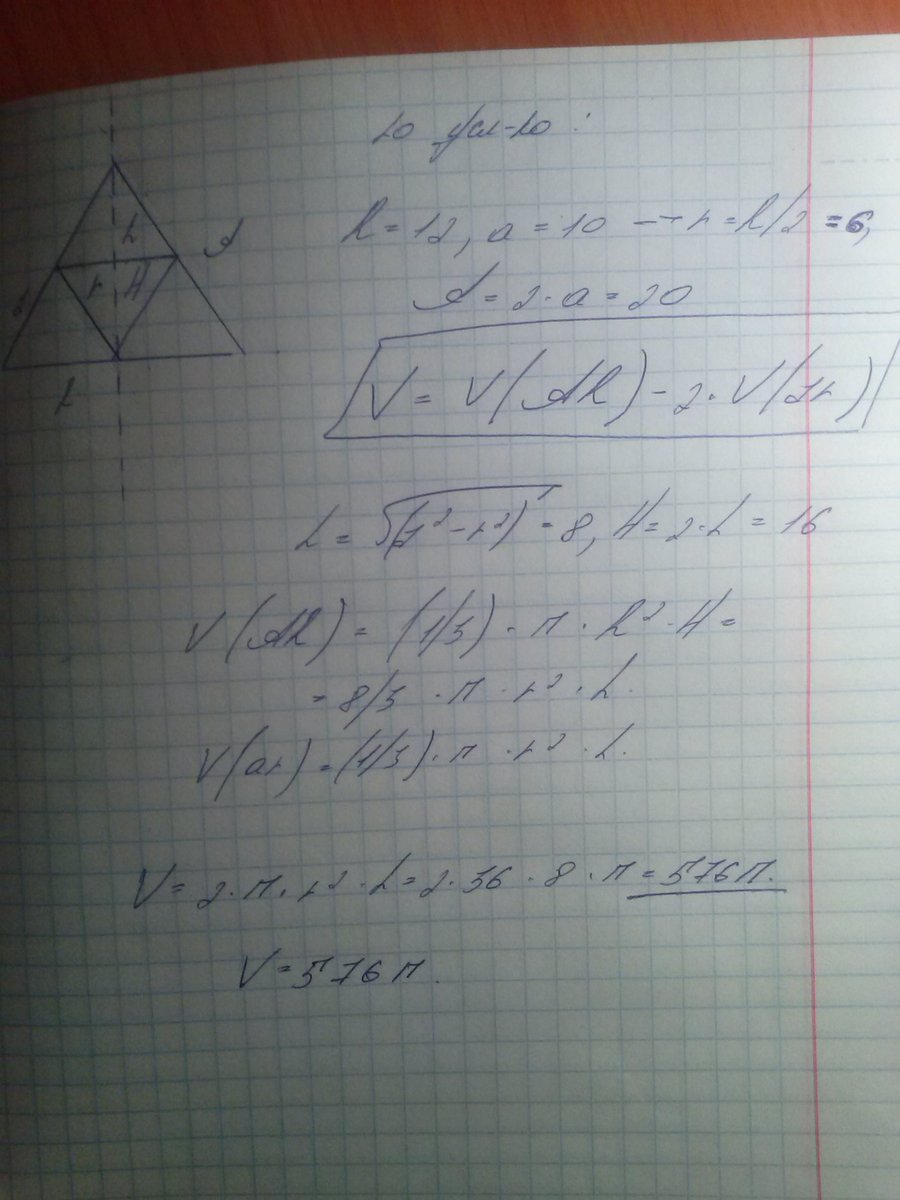 по усл-ю :
R = 12, a = 10 → r = R/2 = 6,
A = 2 · a = 20
V = V(AR) - 2 · V(ar)
h = √(a² - r²) = 8, H = 2 · h = 16
V(AR) = (1/3) · π · R² · H =
= 8/3 · π · r² · h.
V(ar) = (1/3) · π · r² · h.
V = 2 · π · r² · h = 2 · 36 · 8 · π = 576π.
V = 576π.
h
A
r
H